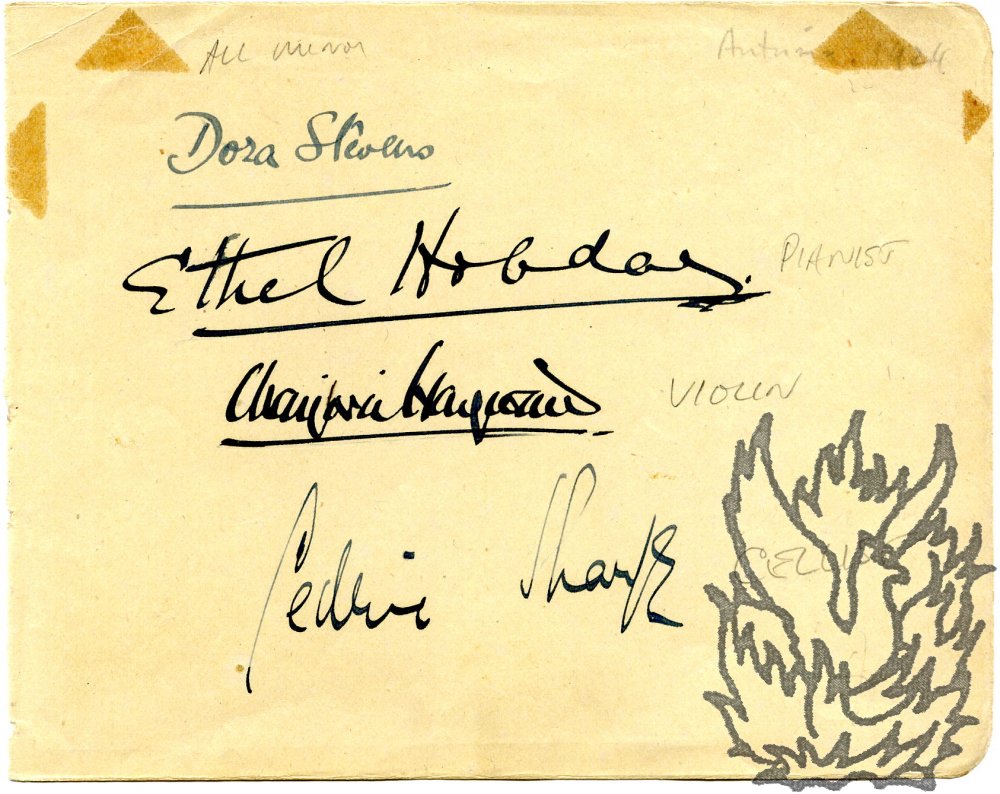 ALL MINOR
Dora Stevens
Ethel Hobday.
PIANIST
Marjorie Hayward
VIOLIN
Cedric Sharpe
CELLIST